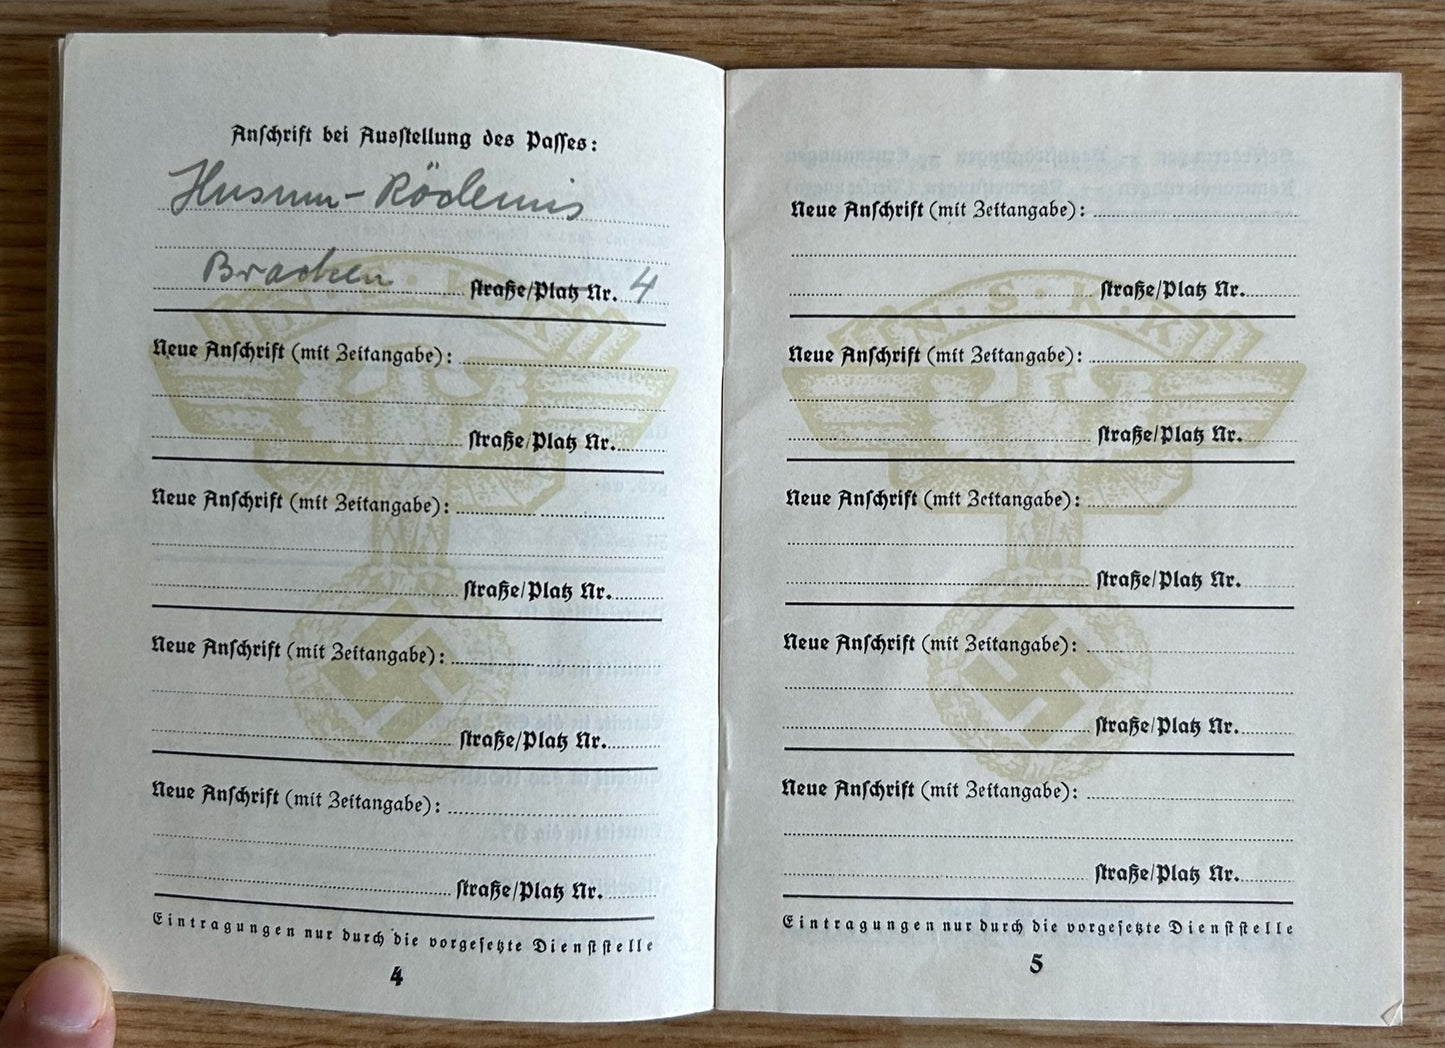 Anschrift bei Ausstellung des Passes:
Husum-Rödemis
Bracken straße/Platz Nr. 4
Neue Anschrift (mit Zeitangabe):
straße/Platz Nr.
Neue Anschrift (mit Zeitangabe):
straße/Platz Nr.
Neue Anschrift (mit Zeitangabe):
straße/Platz Nr.
Neue Anschrift (mit Zeitangabe):
straße/Platz Nr.
Eintragungen nur durch die vorgesetzte Dienststelle
4
Neue Anschrift (mit Zeitangabe):
straße/Platz Nr.
N.S.K.K.
Neue Anschrift (mit Zeitangabe):
straße/Platz Nr.
Neue Anschrift (mit Zeitangabe):
straße/Platz Nr.
Neue Anschrift (mit Zeitangabe):
straße/Platz Nr.
Neue Anschrift (mit Zeitangabe):
straße/Platz Nr.
Eintragungen nur durch die vorgesetzte Dienststelle
5